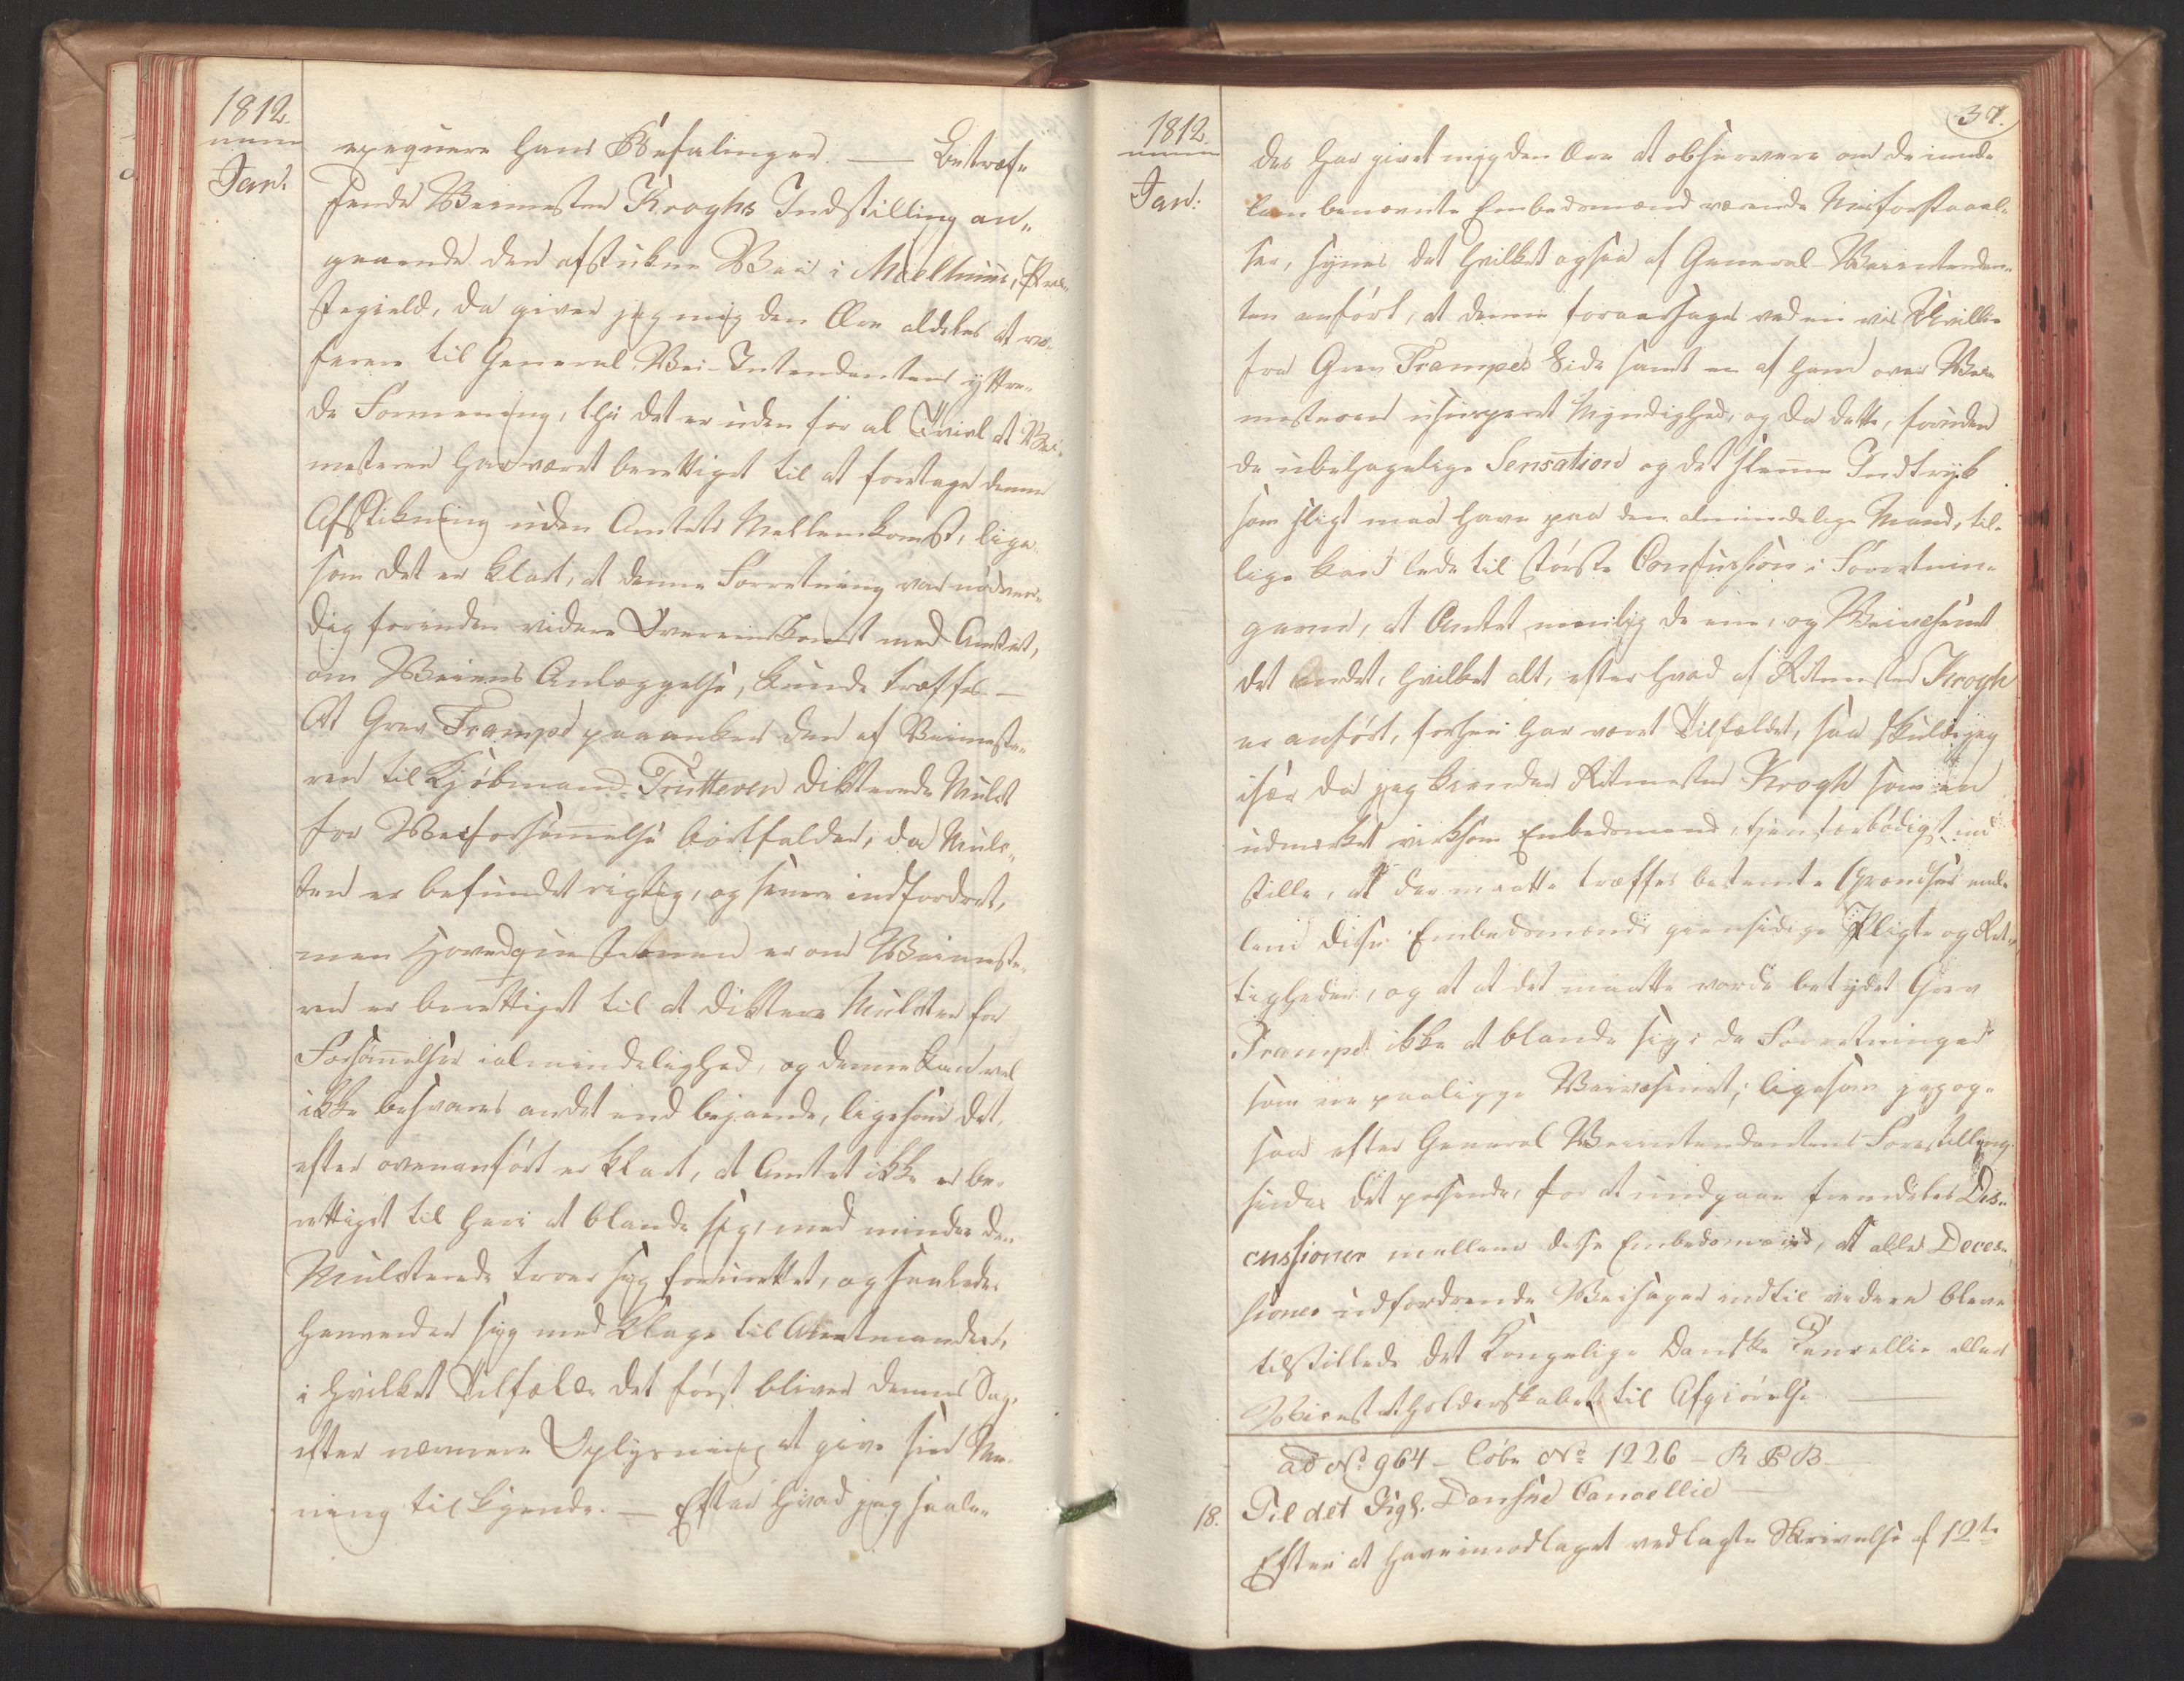 1812.
Jan:
exequere hans Befalinger. — Betræf„
fende Veimester Kroghs Indstilling an„
gaaende den afstukne Vei i Mælhuus, Præ„
stegield, da giver jeg mig den Ære aldeles at re„
ferere til General-Vei-Intendantens yttre„
de Formening, thi det er uden for al Tvivl at Vei„
mesteren har været berettiget til at foretage denne
Afstikning uden Amtets Mellemkomst, lige„
som det er klart, at denne Forretning var nødven„
dig forinden videre Overeenskomst med Amtet,
om Veiens Anlæggelse, kunde træffes. —
At Grev Trampe paaanker den af Veimeste„
ren til Kjøbmand Trutteven dikterede Mulct
for Veiforsømmelse bortfalder, da Mulc„
ten er befundet rigtig, og senere indfordret,
men Hovedquestionen er om Veimeste„
ren er berettiget til at diktere Mulcter for
Forsømmelser i almindelighed, og denne kan vel
ikke besvares andet end bejaende, ligesom det,
efter ovenanført er klart, at Amtet ikke er be„
rettiget til heri at blande sig, med mindre den
Mulcterede troer sig forurettet, og saaledes
henvender sig med Klage til Amtmanden,
i hvilket Tilfælde det først bliver dennes Sag,
efter nærmere Oplysning at give sin Me„
ning tilkjende. — Efter hvad jeg saale„
37.
1812.
Jan:
des har givet mig den Ære at observere om de imel„
lem benævnte Embedsmænd værende Misforstaael„
ser, synes det hvilket ogsaa af General-Veiintendan„
ten anført, at denne foraarsages ved en vis Uvillie
fra Grev Trampes Side samt en af ham over Vei„
mesteren usurperet Myndighed, og da dette, foruden
de ubehagelige Sensation og det slemme Indtryk
som sligt maa have paa den almindelige Mand, til„
lige kan lede til største Confussion i Forretnin„
gerne, at Amtet meenlig de ene, og Veivesenet
det andet, hvilket alt, efter hvad af Ritmester Krogh
er anført, forhen har været Tilfældet, saa skulde jeg
især da jeg kiender Ritmester Krogh som en
udmærket virksom Embedsmand, tjenstærbødigst ind„
stille, at der maatte træffes bestemte Grændser mel„
lem disse Embedsmænds giensidige Pligter og Ret„
tigheder, og at det maatte vorde betydet Grev
Trampe ikke at blande sig i de Forretninger
som ene paaligge Veivæsenet; ligesom jeg og„
saa efter General Veiintendantens Forestilling
finder det passende, for at undgaae fremdeles Dis„
cussioner mellem disse Embedsmænd, at alle Deces„
sioner udfordrende Veisager indtil videre bleve
tilstillede det Kongelige Danske Cancellie eller
Vicestatholderskabet til Afgiørelse. —
ad No. 964 – Løbe No 1226 – R P B –
18. Til det Kigl. Danske Cancellie —
Efter at have modtaget vedlagte Skrivelse af 12te